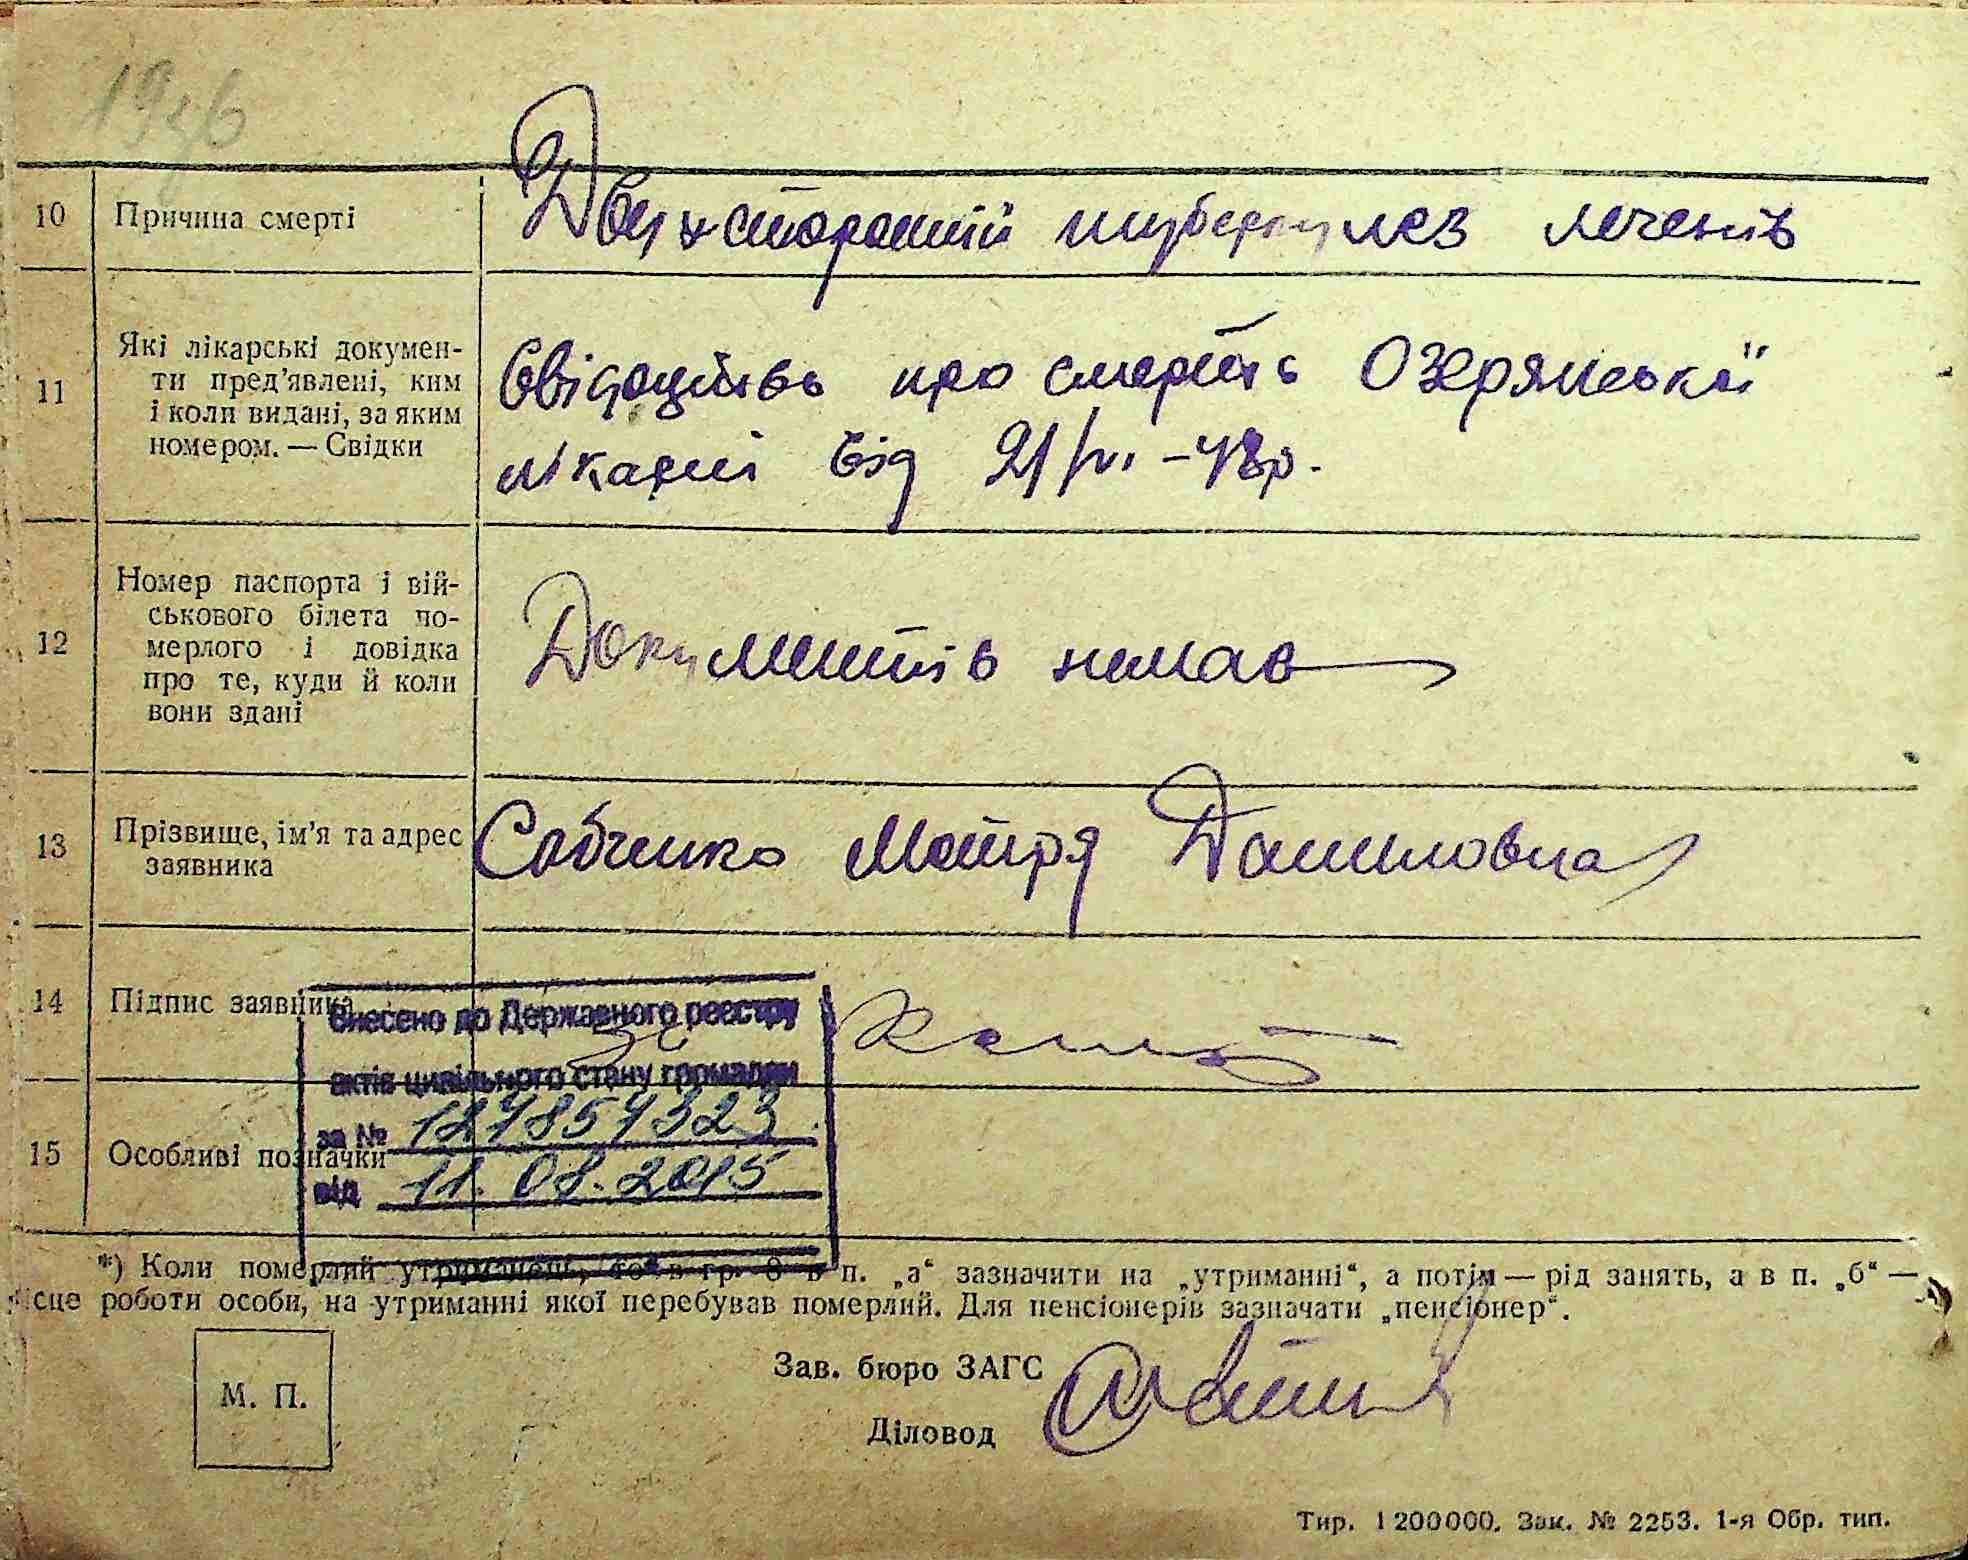 10 Причина смерті Двухсторонній туберкулез легенів
11 Які лікарські докумен-
ти пред’явлені, ким
і коли видані, за яким
номером. — Свідки
Свідоцтво про смерть Озерянської
лікарні від 21/VI - 48р.
12 Номер паспорта і вій-
ськового білета по-
мерлого і довідка
про те, куди й коли
вони здані
Документів немає
13 Прізвище, ім’я та адрес
заявника
Собченко Мотря Даниловна
14 Підпис заявника
Внесено до Державного реєстру
актів цивільного стану громадян
за №
15 Особливі позначки
від 11.08.2015
*) Коли померлий утриманець, то в гр. 8 в п. „а“ зазначити на „утриманні“, а потім — рід занять, а в п. „б“ —
місце роботи особи, на утриманні якої перебував померлий. Для пенсіонерів зазначати „пенсіонер“.
М. П.
Зав. бюро ЗАГС
Діловод
Тир. 1 200 000. Зак. № 2253. 1-я Обр. тип.